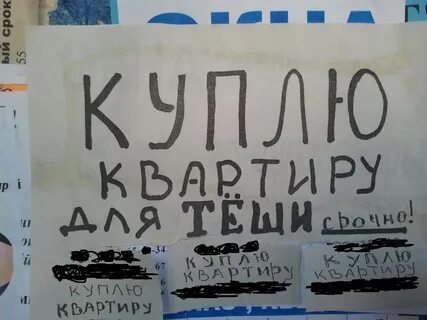 ый срок
55
КУПЛЮ
КВАРТИРУ
ДЛЯ ТЁЩИ срочно!
-34
67
КУПЛЮ
КВАРТИРУ
КУПЛЮ
КВАРТИРУ
КУПЛЮ
КВАРТИРУ